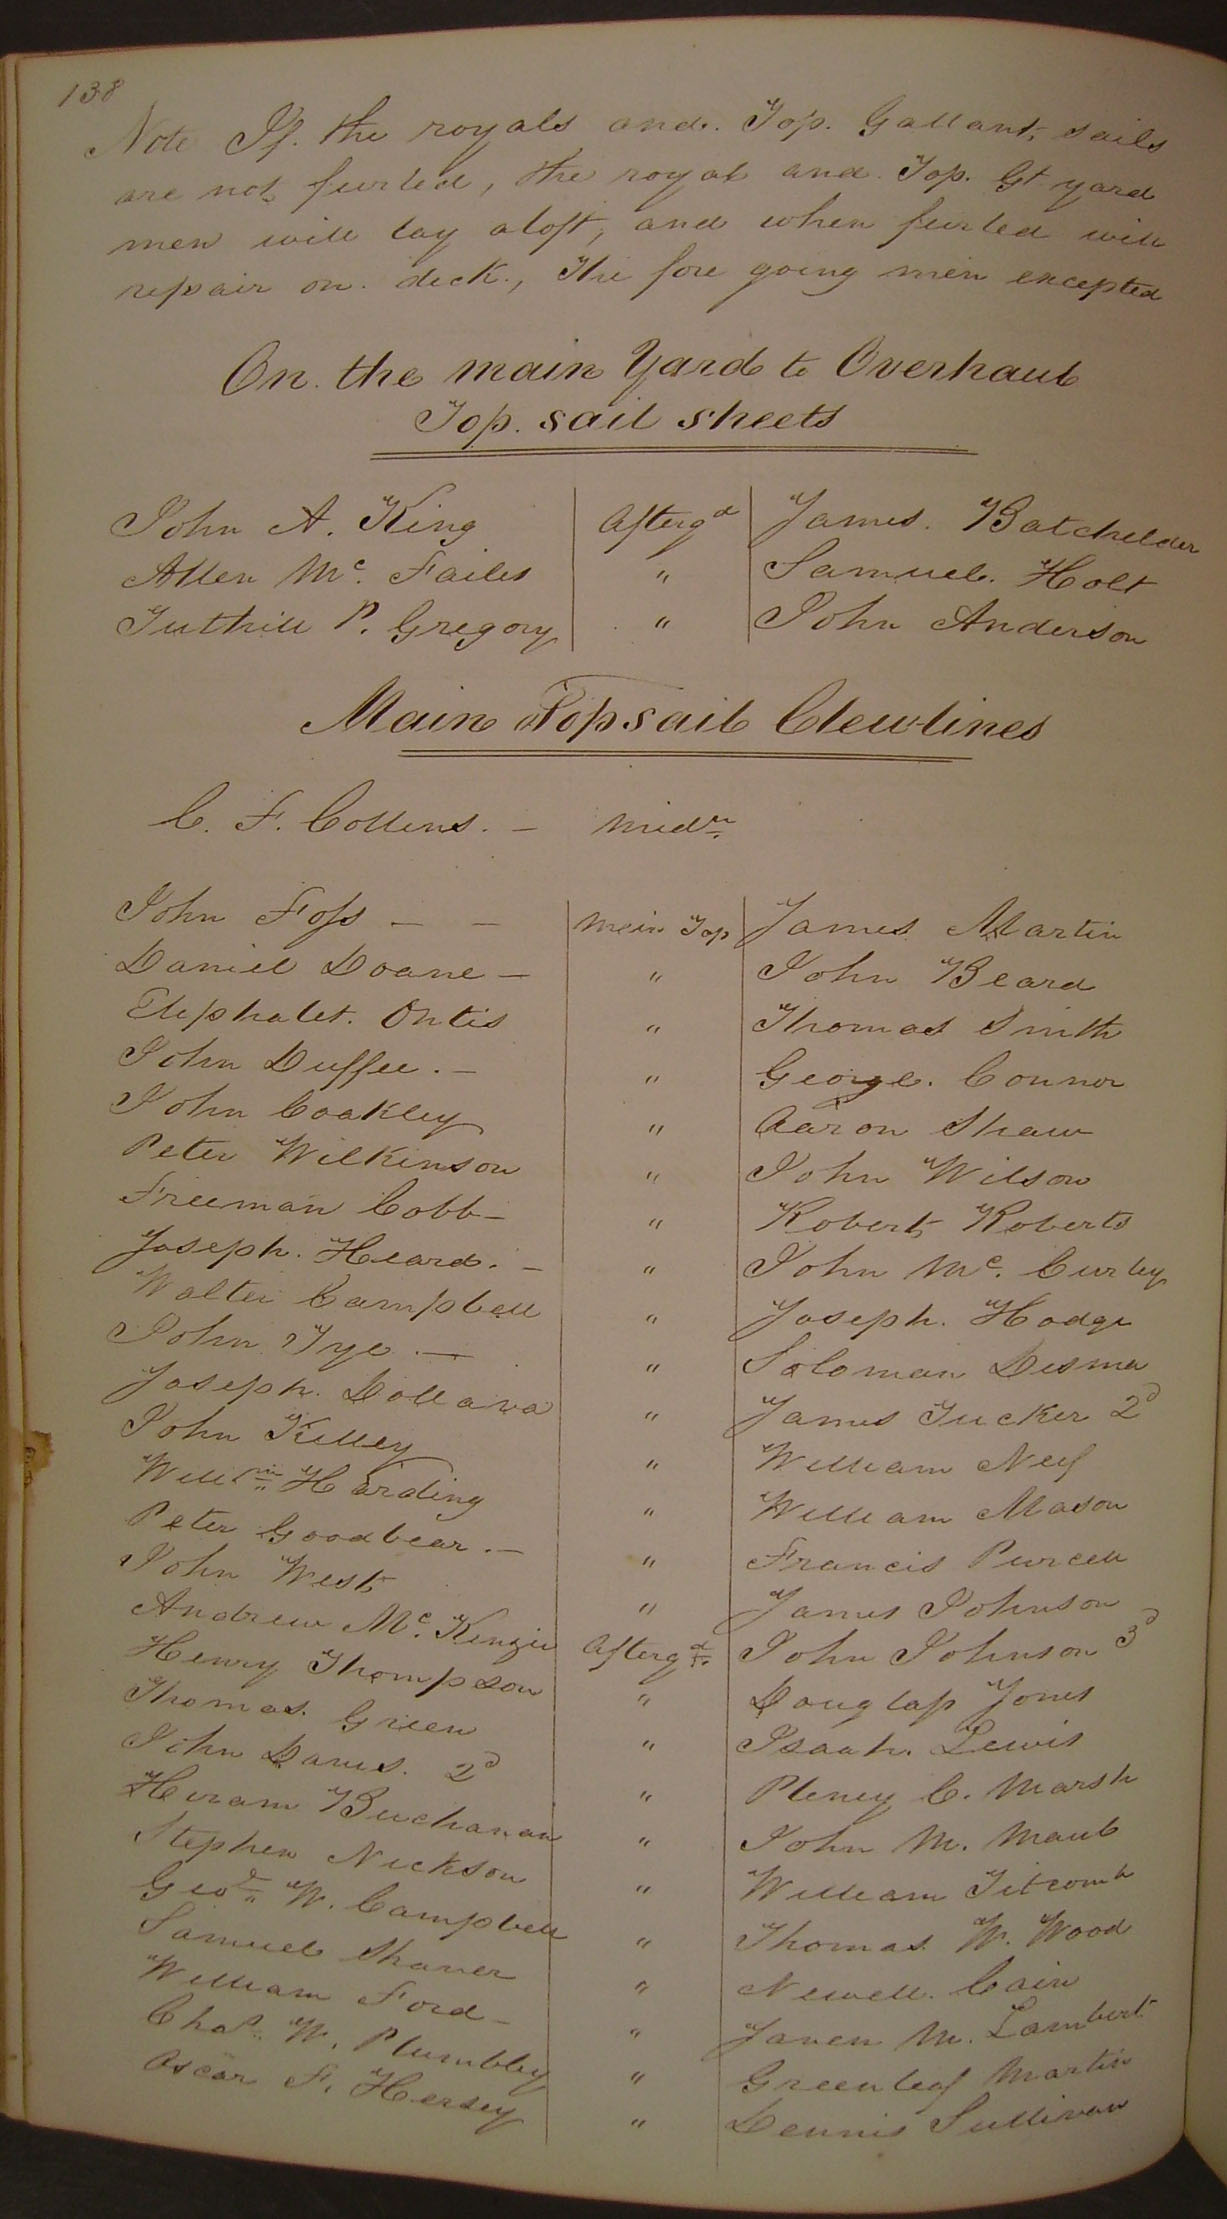 138
Note If. the royals and. Top. Gallant, sails
are not furled, the royal and Top. Gt yard
men will lay aloft, and when furled will
repair on. deck., The fore going men excepted
On. the main Yard to Overhaul
Top. sail sheets
John A. King | Afterg d | James. Batchelder
Allen Mc. Failes | " | Samuel. Holt
Tuthill P. Gregory | " | John Anderson
Main Topsail Clewlines
C. F. Collens. - Midn
John Foss - - | Main Top | James Martin
Daniel Doane - | " | John Beard
Eliphalet. Ontis | " | Thomas Smith
John Duffee. - | " | George. Connor
John Coakley | " | Aaron Shaw
Peter Wilkinson | " | John Wilson
Freeman Cobb - | " | Robert Roberts
Joseph. Heard. - | " | John Mc. Curley
Walter Campbell | " | Joseph. Hodge
John Tye. - | " | Soloman Desma
Joseph. Dollava | " | James Tucker 2d
John Kelley | " | William Neef
Willm Harding | " | William Mason
Peter Goodbear. - | " | Francis Purcell
John West | " | James Johnson
Andrew Mc. Kenzie | Afterg d. | John Johnson 3d
Henry Thompson | " | Douglass Jones
Thomas. Green | " | Isaah. Lewis
John Davis. 2d | " | Pleney C. Marsh
Hiram Buchanan | " | John M. Maul
Stephen Nickson | " | William Titcomb
Geo. W. Campbell | " | Thomas W. Wood
Samuel Shaver | " | Newell. Cain
William Ford - | " | M. Lambert
Chas. W. Plumbley | " | Greenleaf Martin
Oscar F. Hersey | " | Dennis Sullivan